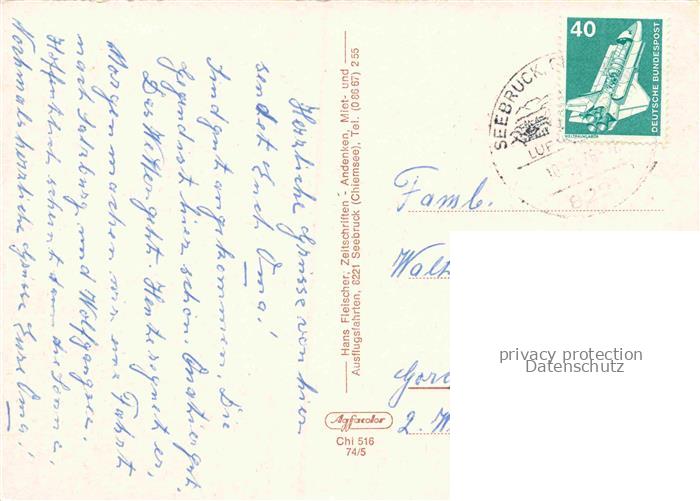 Herzliche Grüsse von hier
sendet Euch Oma!
Sind gut angekommen. Die
Gegend ist hier schön. Quatier gut.
Das Wetter geht. Heute regnet es,
Morgen machen wir eine Fahrt
nach Salzburg und Wolfgangsee.
Hoffentlich scheint dann die Sonne.
Nochmals herzliche Grüsse Eure Oma!
Hans Fleischer, Zeitschriften - Andenken, Miet- und
Ausflugsfahrten, 8221 Seebruck (Chiemsee), Tel. (0 86 67) 2 55
Agfacolor
Chi 516
74/5
40
DEUTSCHE BUNDESPOST
WELTRAUMLABOR
SEEBRUCK,
LUF
822
Famb.
Walt
2. W
privacy protection
Datenschutz